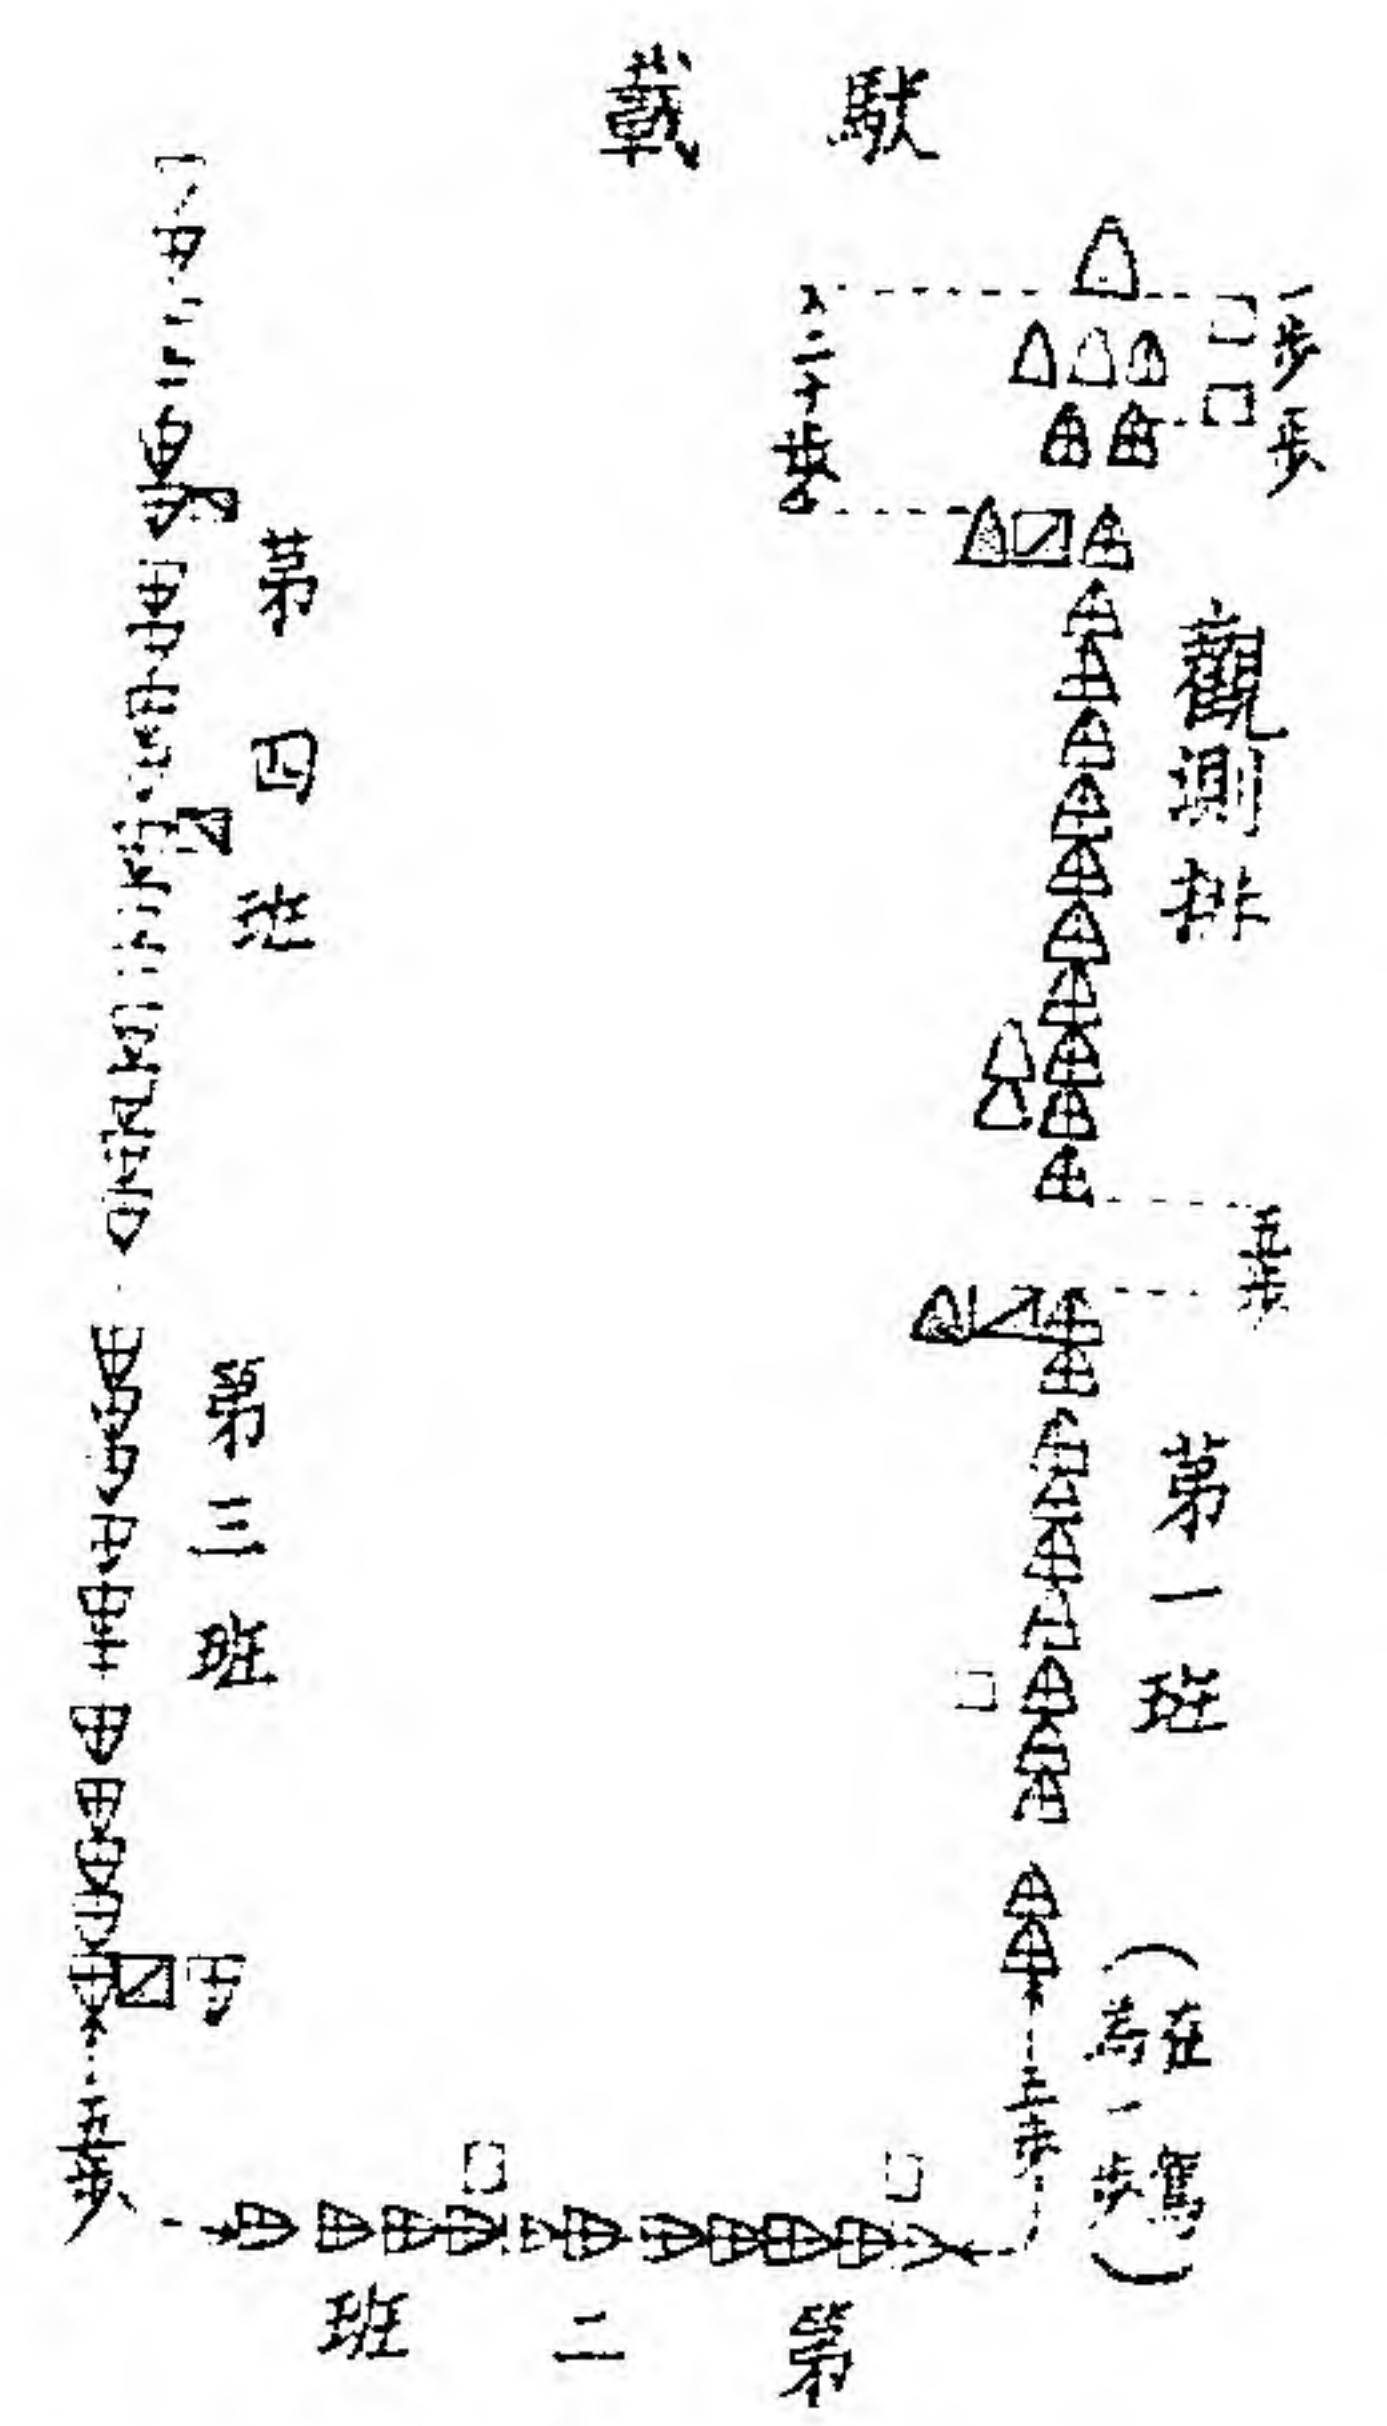 馱載
一步
一步
二十步
觀測排
五步
第一班
(在駕
為一步)
五步
第二班
五步
第三班
第四班